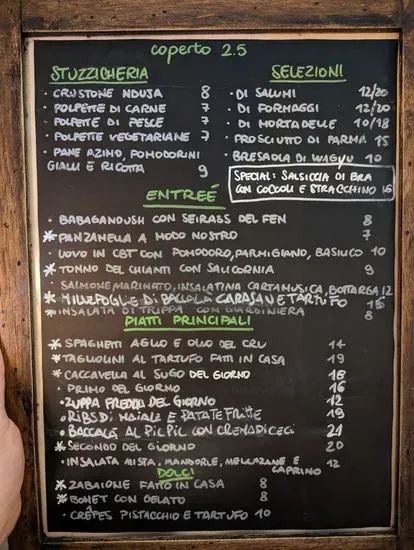 coperto 2.5
STUZZICHERIA
· CRUSTONE NDUJA 8
· POLPETTE DI CARNE 7
· POLPETTE DI PESCE 7
· POLPETTE VEGETARIANE 7
· PANE AZIMO, POMODORINI
GIALLI E RICOTTA 9
SELEZIONI
· DI SALUMI 12/20
· DI FORMAGGI 12/20
· DI MORTADELLE 10/18
· PROSCIUTTO DI PARMA 15
· BRESAOLA DI WAGYU 10
SPECIAL: SALSICCIA DI BRA
CON COCCOLI E STRACCHINO 16
ENTREÉ
· BABAGANOUSH CON SEIRASS DEL FEN 8
* PANZANELLA A MODO NOSTRO 7
· UOVO IN CBT CON POMODORO, PARMIGIANO, BASILICO 10
* TONNO DEL CHIANTI CON SALICORNIA 9
· SALMONE MARINATO, INSALATINA CARTAMUSICA, BOTTARGA 12
* MILLEFOGLIE DI BACCALÀ CARASAN E TARTUFO 15
* INSALATA DI TRIPPA CON GIARDINIERA 8
PIATTI PRINCIPALI
* SPAGHETTI AGLIO E OLIO DEL CRU 14
* TAGLIOLINI AL TARTUFO FATTI IN CASA 19
* CACCAVELLA AL SUGO DEL GIORNO 18
· PRIMO DEL GIORNO 16
· ZUPPA FREDDA DEL GIORNO 12
· RIBS DI MAIALE E PATATE FRITTE 19
· BACCALÀ AL PIL PIL CON CREMA DI CECI 21
* SECONDO DEL GIORNO 20
· INSALATA MISTA, MANDORLE, MELANZANE E CAPRINO 12
DOLCI
* ZABAIONE FATTO IN CASA 8
* BONET CON GELATO 8
· CRÊPES PISTACCHIO E TARTUFO 10